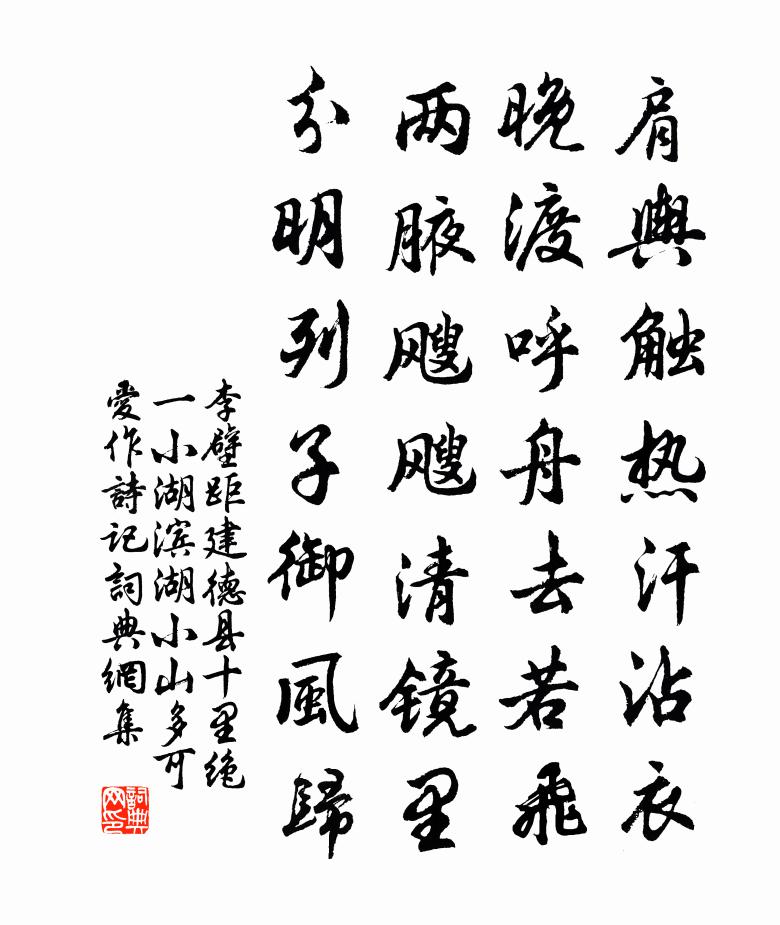 肩舆触热汗沾衣
晚渡呼舟去若飛
两腋飕飕清镜里
分明列子御風歸
李壁距建德县十里绝
一小湖滨湖小山多可
愛作詩记詞典網集
詞典
网印